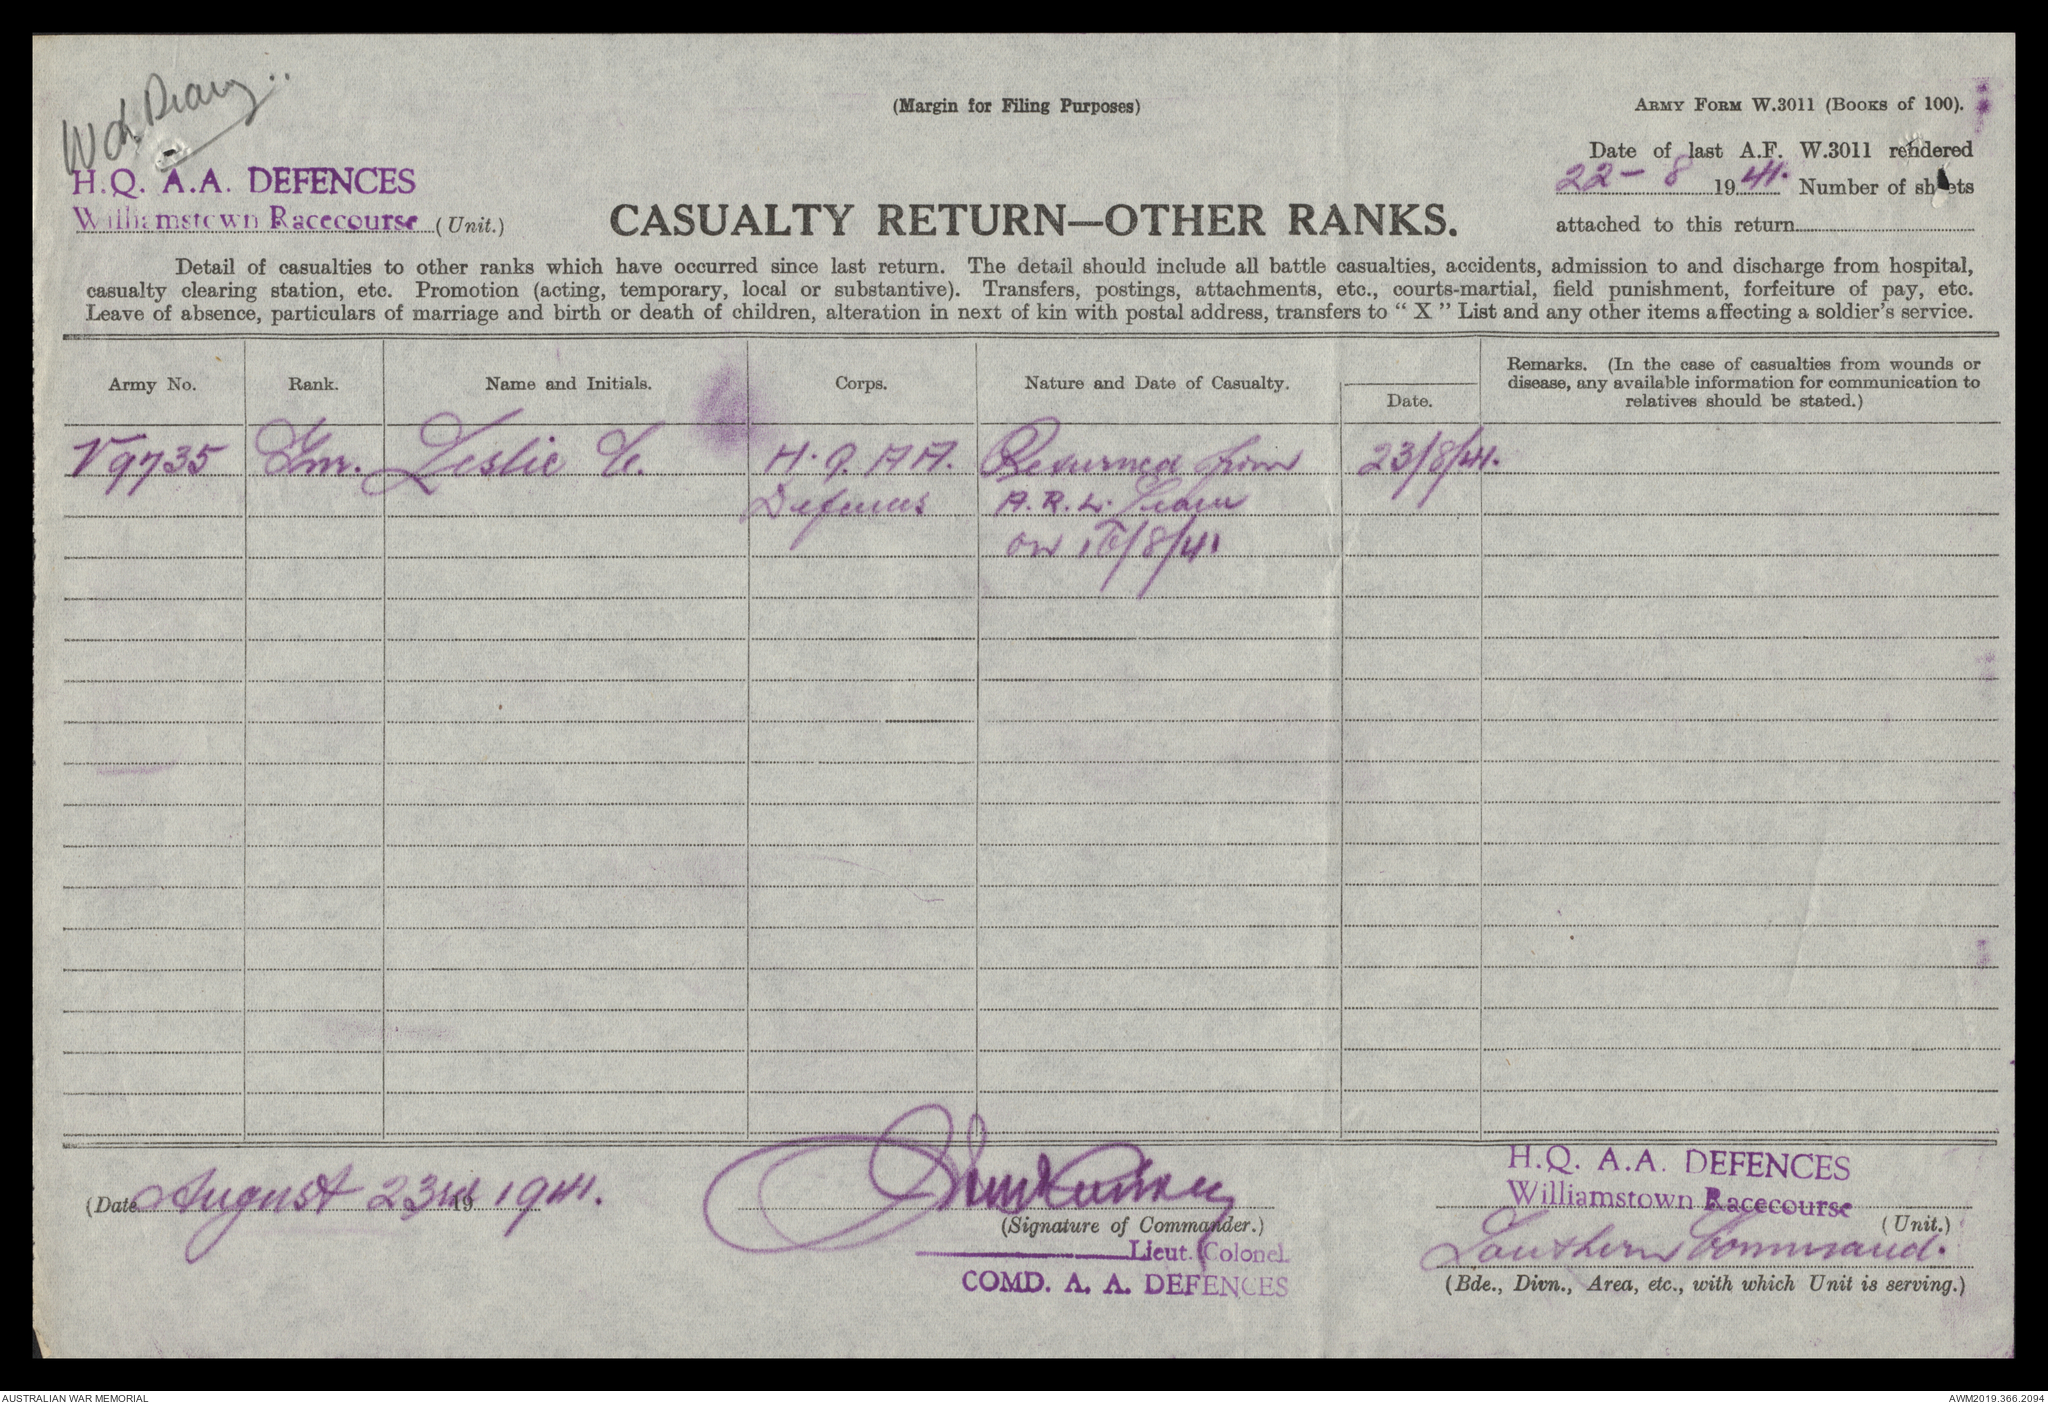 War Diary..
(Margin for Filing Purposes)
ARMY FORM W.3011 (BOOKS of 100).
Date of last A.F. W.3011 rendered
22 - 8 1941. Number of sheets
attached to this return
H.Q. A.A. DEFENCES
Williamstown Racecourse (Unit.)
CASUALTY RETURN—OTHER RANKS.
Detail of casualties to other ranks which have occurred since last return. The detail should include all battle casualties, accidents, admission to and discharge from hospital,
casualty clearing station, etc. Promotion (acting, temporary, local or substantive). Transfers, postings, attachments, etc., courts-martial, field punishment, forfeiture of pay, etc.
Leave of absence, particulars of marriage and birth or death of children, alteration in next of kin with postal address, transfers to “ X ” List and any other items affecting a soldier's service.
Army No. Rank. Name and Initials. Corps. Nature and Date of Casualty. Date. Remarks. (In the case of casualties from wounds or
disease, any available information for communication to
relatives should be stated.)
V9735 Gnr. Leslie H.Q. A.A. Returned from 23/8/41.
Defences A.R.L. Leave
on /8/41
(Date August 23rd 19 1941.
(Signature of Commander.)
Lieut. Colonel.
COMD. A. A. DEFENCES
H.Q. A.A. DEFENCES
Williamstown Racecourse
(Unit.)
Southern Command.
(Bde., Divn., Area, etc., with which Unit is serving.)
AUSTRALIAN WAR MEMORIAL
AWM2019.366.2094